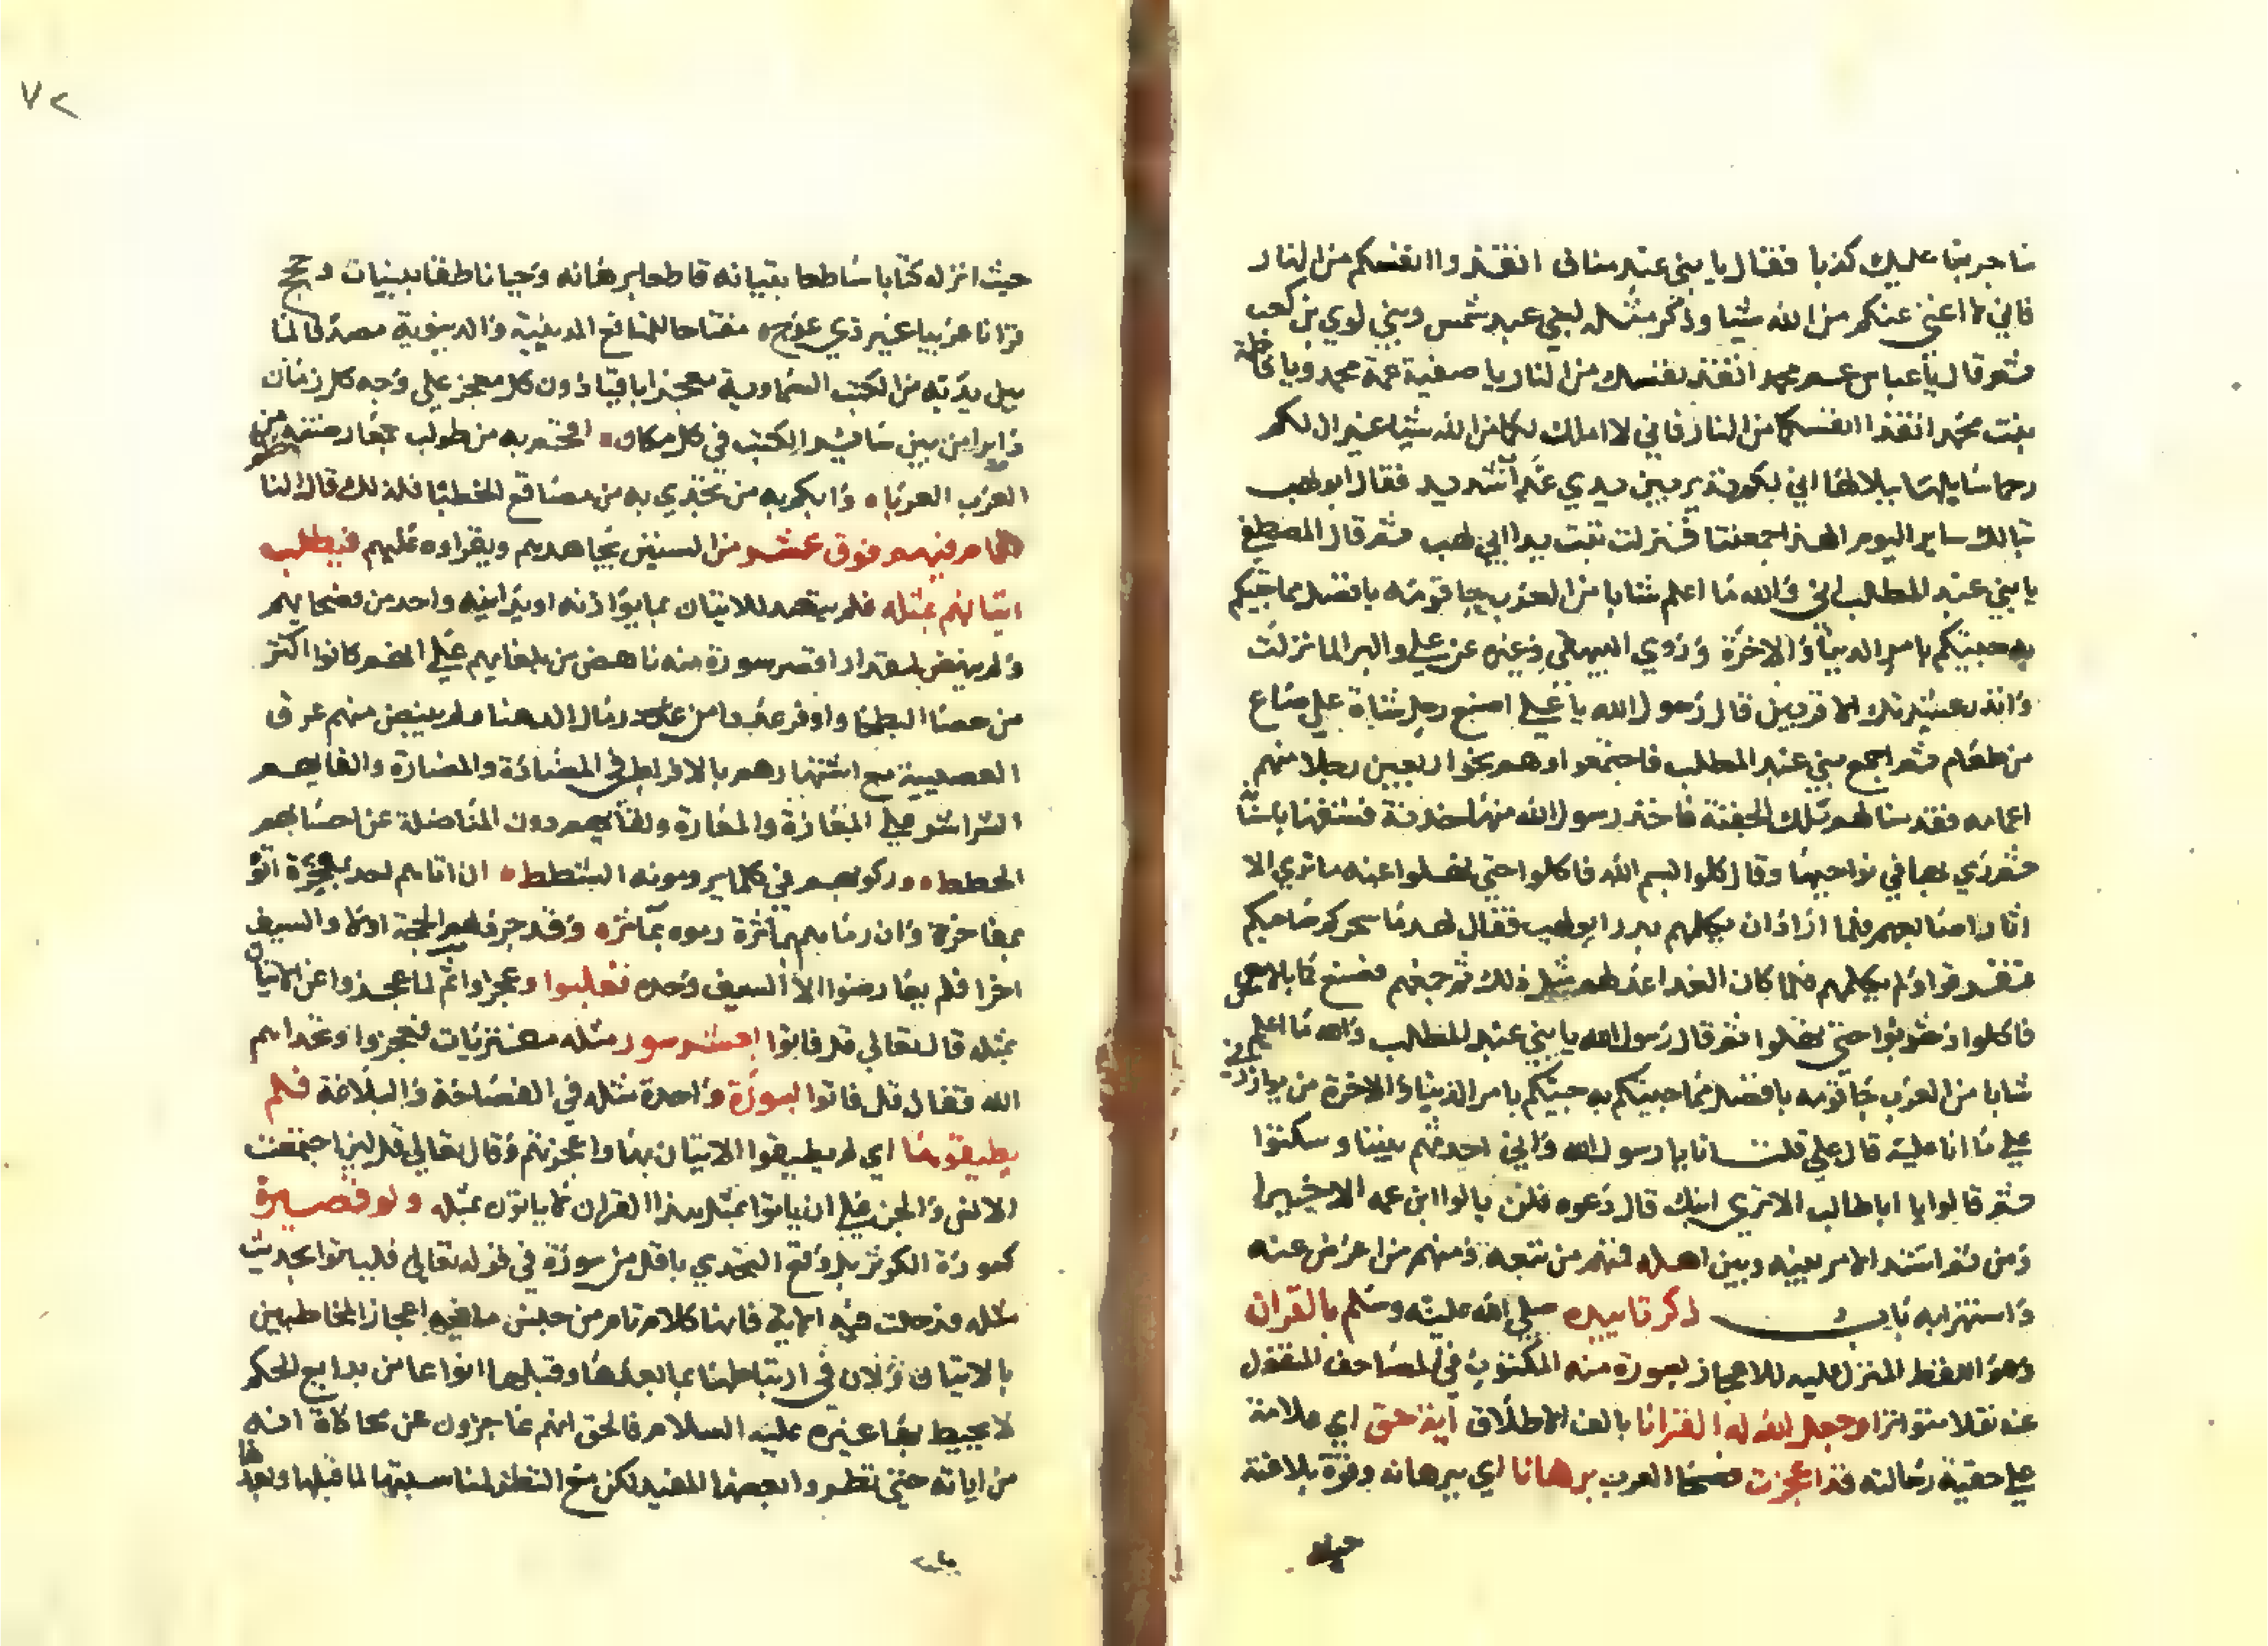 ما جربنا عليك كذبا فقال يا بني عبد مناف انقذوا انفسكم من النار
فاني لا اغني عنكم من الله شيا وذكر مثله لبني عبد شمس وبني لوي بن كعب
ثم قال يا عباس عم محمد انقذ نفسك من النار يا صفية عمة محمد ويا فاطمة
بنت محمد انقذا انفسكما من النار فاني لا املك لكما من الله شيا غير ان لكم
رحما سابلها ببلالها اني لكم نذير بين يدي عذاب شديد فقال ابو لهب
تبا لك ساير اليوم الهذا جمعتنا فنزلت تبت يدا ابي لهب ثم قال المصطفى
يا بني عبد المطلب اني والله ما اعلم شابا من العرب جا قومه بافضل مما جيتكم
به جيتكم بامر الدنيا والاخرة وروي البيهقي وغيره عن علي والبرا لما نزلت
وانذر عشيرتك الاقربين قال رسول الله يا علي اصنع رجل شاة علي صاع
من طعام ثم اجمع بني عبد المطلب فاجتمعوا وهم نحو اربعين رجلا منهم
اعمامه فقدمنا لهم تلك الجفنة فاخذ رسول الله منها حذفة فشقها باسنانه
ثم رمي بها في نواحيها وقال كلوا بسم الله فاكلوا حتى نهلوا عنه ما نري الا
اثار اصابعهم فلما اراد ان يكلمهم بدر ابو لهب فقال لهد ما سحركم صاحبكم
فتفرقوا ولم يكلمهم فلما كان الغد اعد لهم مثل ذلك ثم جمعهم فصنع كما بالامس
فاكلوا وشربوا حتى نهلوا ثم قال رسول الله يا بني عبد المطلب والله ما اعلم
شابا من العرب جا قومه بافضل مما جيتكم به جيتكم بامر الدنيا والاخرة من يوازرني
علي ما انا عليه قال علي قلت انا يا رسول الله واني احدثهم سنا وسكتوا
ثم قالوا يا ابا طالب الا تري ابنك قال دعوه فلن يالوا ابن عمه الا خيرا
ومن ثم اشتد الامر بينه وبين اهله فمنهم من تبعه ومنهم من اعرض عنه
واستهزا به باب ذكر تاييده صلي الله عليه وسلم بالقران
وهو اللفظ المنزل عليه للاعجاز بسورة منه المكتوب في المصاحف المنقول
عنه نقلا متواترا وجعل الله له القرانا بالف الاطلاق اية حق اي علامة
علي حقية رسالته قد اعجزت فصحا العرب برهانا اي ببرهانه وقوة بلاغته
حيث
٧٢
حيث انزله كتابا ساطعا بتبيانه قاطعا برهانه وحيا ناطقا ببينات وحجج
قرانا عربيا غير ذي عوج مفتاحا للمنافع الدينية والدنيوية مصدقا لما
بين يديه من الكتب السماوية معجزا باقيا دون كل معجز علي وجه كل زمان
دايرا من بين ساير الكتب في كل مكان افحم به من طولب بمعارضته من
العرب العرباء وابكم به من تحدي به من مصاقع الخطبا فلذلك قال لنا
اقام فيهم فوق عشر من السنين يجاهدهم ويقراه عليهم فيطلب
اتيانهم بمثله فلم يتصد للاتيان بما يوازنه او يدانيه واحد من فصحايهم
ولم ينهض لمقدار اقصر سورة منه ناهض من بلغايهم علي انهم كانوا اكثر
من حصا البطحا واوفر عددا من رمال الدهنا ولم ينبض منهم عرق
العصبية مع اشتهارهم بالافراط في المضادة والمضارة والقايهم
الشراشر علي المعازة والمعارة ولقايهم دون المناضلة عن احسابهم
الخطط وركوبهم في كلما يرومونه الشطط ان اتاهم احد بمفخرة اتوا
بمفاخر وان رماهم بماثرة رموه بماثر وقد جرد لهم الحجة اولا والسيف
اخرا فلم يعارضوا الا السيف وحده فغلبوا وعجزوا ثم لما عجزوا عن الاتيان
بمثله قال تعالي قل فاتوا بعشر سور مثله مفتريات فعجزوا وتحداهم
الله فقال قل فاتوا بسورة واحدة مثله في الفصاحة والبلاغة فلم
يطيقوها اي لم يطيقوا الاتيان بها واعجزتهم وقال تعالي قل لين اجتمعت
الانس والجن علي ان ياتوا بمثل هذا القران لا ياتون بمثله ولو قصيرة
كسورة الكوثر بل وقع التحدي باقل من سورة في قوله تعالي فلياتوا بحديث
مثله فدخلت فيه الاية فانها كلام تام من جنس ما فيه اعجاز المخاطبين
بالاتيان ولان في ارتباطها بما بعدها وقبلها انواعا من بدايع الحكم
لا يحيط بها غيره عليه السلام فالحق انهم عاجزون عن محاكاة اية
من اياته حتي نظر وا بعضها للمفيد لكن مع النظر لمناسبتها لما قبلها وبعدها